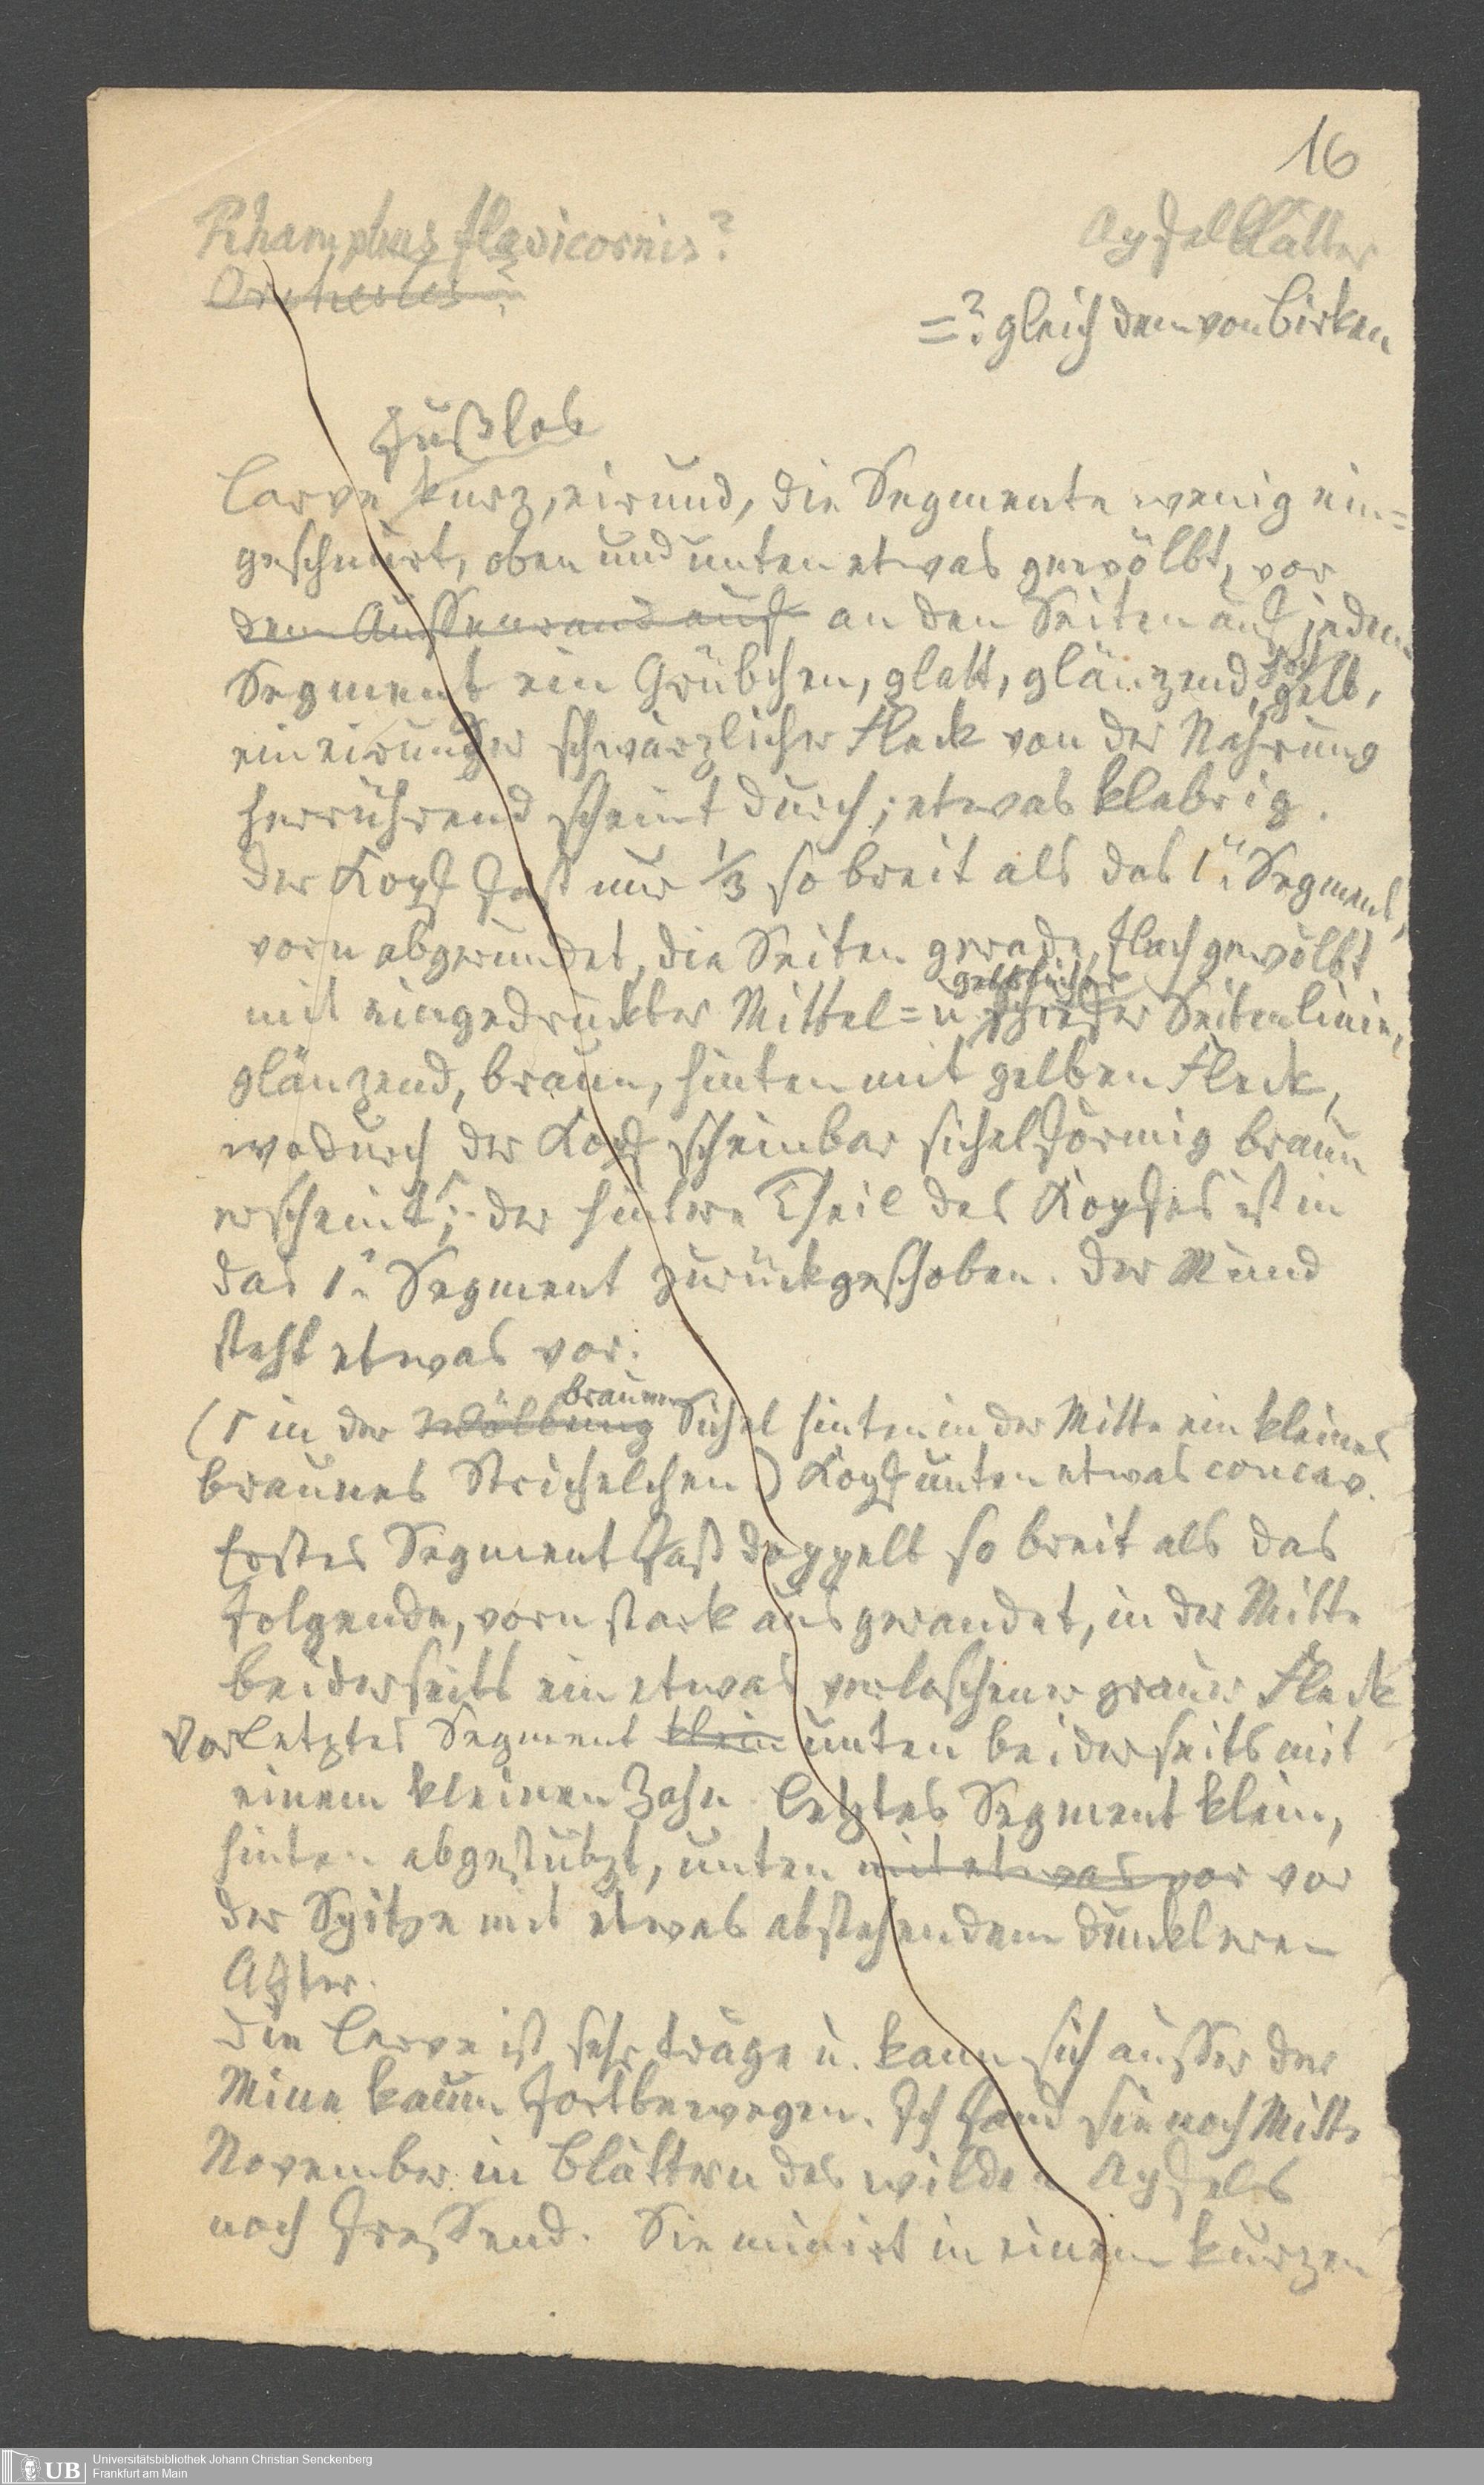 16
Rhamphus flavicornis?
Apfelblätter
Orchestes?
=? gleich dem von Birken
fußlos
Larve kurz, eirund, die Segmente wenig ein=
geschnürt, oben und unten etwas gewölbt, vor
dem Aussenrand auf an den Seiten auf jedem
Segment ein Grübchen, glatt, glänzend, gelb,
ein eirunder schwärzlicher Fleck von der Nahrung
herrührend scheint durch; etwas klebrig.
Der Kopf fast nur 1/3 so breit als das 1. Segment,
vorn abgerundet, die Seiten gerade, flach gewölbt
gelblicher
mit eingedrückter Mittel= u. Seitenlinie,
glänzend, braun, hinten mit gelben Fleck,
wodurch der Kopf scheinbar sichelförmig braun
erscheint; der hintere Theil des Kopfes ist in
das 1. Segment zurückgeschoben. Der Mund
steht etwas vor.
braunen
(in der Wölbung Sichel hinten in der Mitte ein kleines
braunes Strichelchen) Kopf unten etwas concav.
Erstes Segment fast doppelt so breit als das
folgende, vorn stark ausgerandet, in der Mitte
beiderseits ein etwas verloschener grauer Fleck
Vorletztes Segment klein unten beiderseits mit
einem kleinen Zahn. Letztes Segment klein,
hinten abgestutzt, unten mit etwas vor vor
der Spitze mit etwas abstehendem dunkleren
After.
Die Larve ist sehr träge u. kann sich ausser der
Mine kaum fortbewegen. Ich fand sie noch Mitte
November in Blättern des wilden Apfels
noch fressend. Sie minirt in einem kurzen
UB
Universitätsbibliothek Johann Christian Senckenberg
Frankfurt am Main